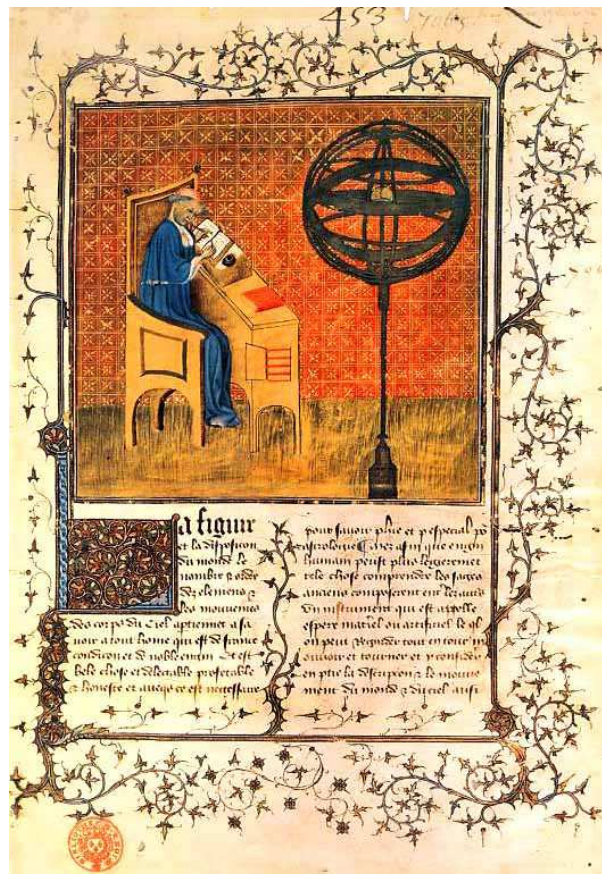 453 7065
a figure
et la disposicion
du monde le
nombre & ordre
des elemens &
les mouvemens
des corps du ciel aptiennent a sa
voir a tout home qui est de franche
condicion et de noble engin Et est
bele chose et delectable profetable
& honeste et avecques ce est necessaire
pour savoir et p especial po
astrologie afin que engin
humain puist plus legierement
tele chose comprendre les sages
anciens composerent
un instrument qui est appelle
espere materiel ou artificiel
on peut regarder tout entour
mouvoir et tourner et y considerer
en ptie la descripcion & le mouve
ment du monde & du ciel aussi